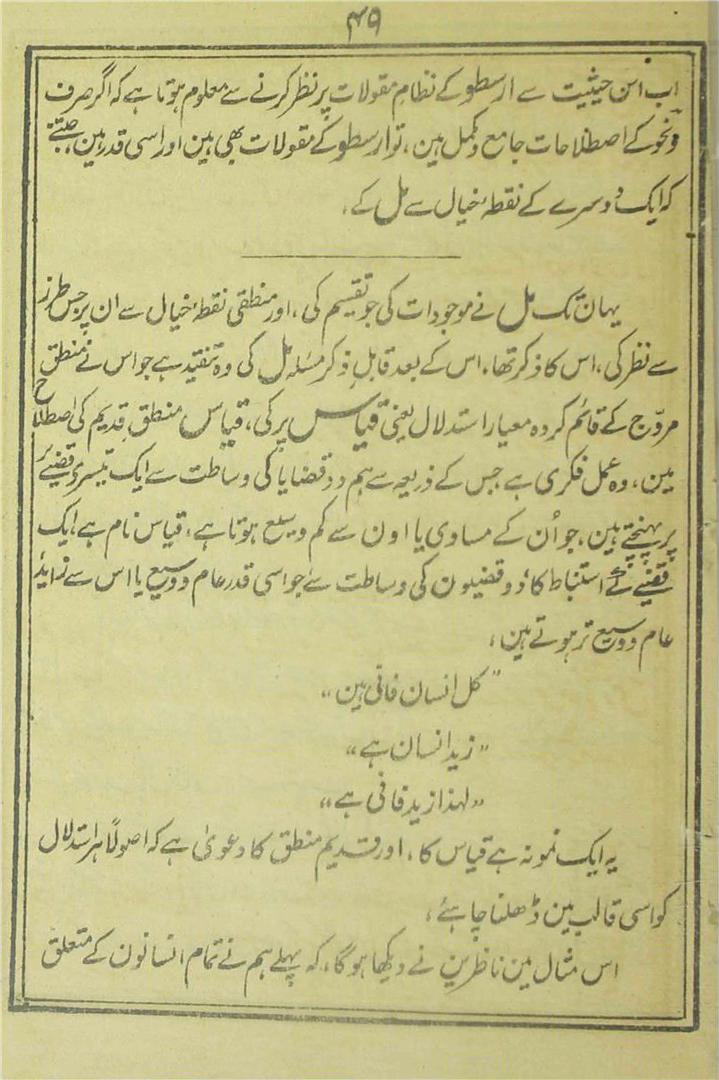 ۴۹
اب اس حیثیت سے ارسطو کے نظامِ مقولات پر نظر کرنے سے معلوم ہوتا ہے کہ اگر صرف
ونحو کے اصطلاحات جامع و مکمل ہین، تو ارسطو کے مقولات بھی ہین اور اسی قدر ہین، جتنے
کہ ایک دوسرے کے نقطۂ خیال سے مل کے۔
یہان تک مل نے موجودات کی جو تقسیم کی، اور منطقی نقطۂ خیال سے ان پر جس طرز
سے نظر کی، اس کا ذکر تھا، اس کے بعد قابلِ ذکر مسئلہ مل کی وہ تنقید ہے جو اس نے منطقِ
مروّج کے قائم کردہ معیارِ استدلال یعنی قیاس پر کی، قیاس منطقِ قدیم کی اصطلاح
مین، وہ عمل فکری ہے جس کے ذریعہ سے ہم دو قضایا کی وساطت سے ایک تیسرے قضیے
پر پہنچتے ہین، جو اُن کے مساوی یا اون سے کم وسیع ہوتا ہے، قیاس نام ہے ایک
قضیے کے استنباط کا دو قضیون کی وساطت سے جو اسی قدر عام و وسیع یا اس سے زاید
عام و وسیع تر ہوتے ہین،
"کل انسان فانی ہین"
"زید انسان ہے"
"لہذا زید فانی ہے"
یہ ایک نمونہ ہے قیاس کا، اور قدیم منطق کا دعویٰ ہے کہ اصولاً ہر استدلال
کو اسی قالب مین ڈھلنا چاہئے،
اس مثال مین ناظرین نے دیکھا ہوگا، کہ پہلے ہم نے تمام انسانون کے متعلق